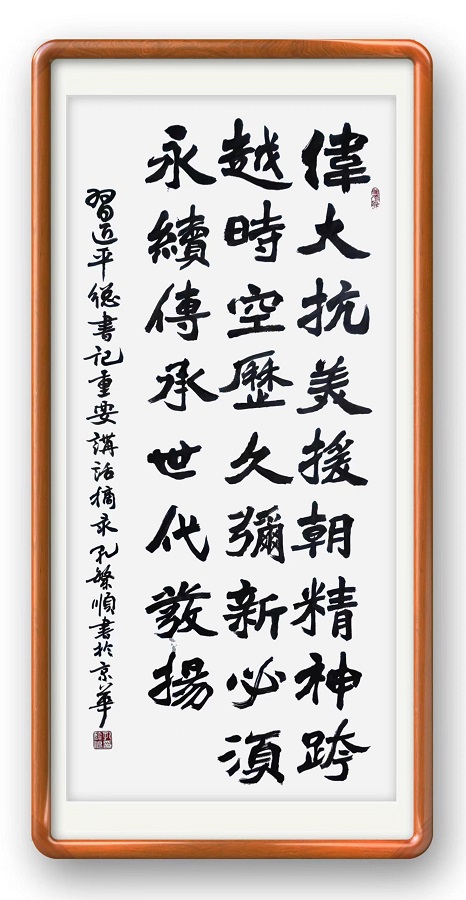 偉大抗美援朝精神跨
越時空歷久彌新必須
永續傳承世代發揚
習近平總書記重要講話摘录孔繁順書於京華